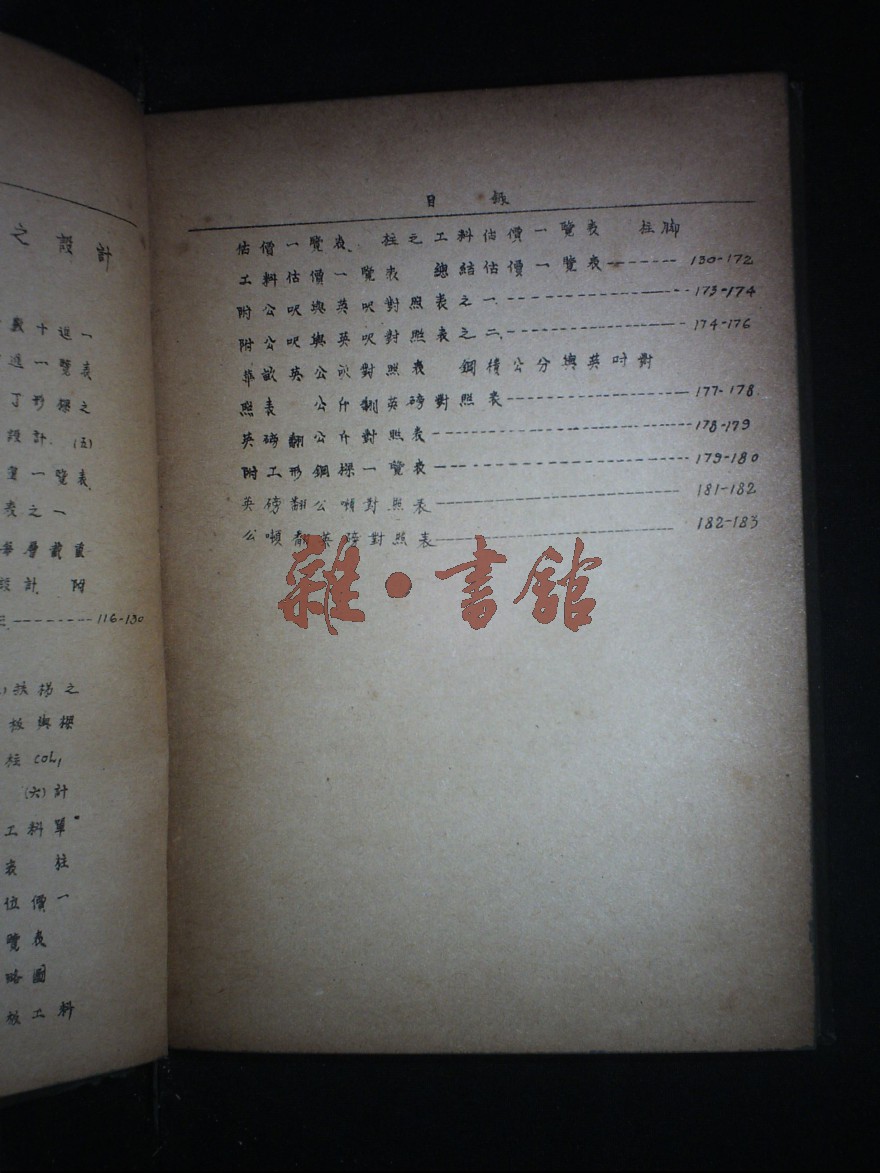 之設計
戴十進一
進一覽表
丁形樑之
設計.(五)
一覽表
表之一
每層載重
設計. 附
116-130
扶梯之
板與樑
柱 COL,
(六)計
工料單
表 柱
位價一
覽表
略圖
板工料
目 錄
估價一覽表. 柱之工料估價一覽表 柱脚
工料估價一覽表 總結估價一覽表 130-172
附公呎與英呎對照表之一 173-174
附公呎與英呎對照表之二 174-176
華畝英公畝對照表 鋼積公分與英吋對
照表 公斤翻英磅對照表 177-178
英磅翻公斤對照表 178-179
附工形鋼樑一覽表 179-180
英磅翻公噸對照表 181-182
公噸翻英磅對照表 182-183
雜·書館